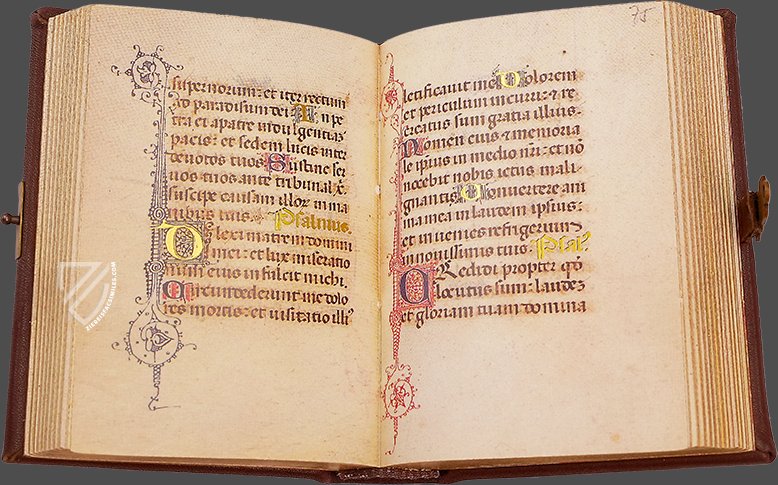 supernorum: et iter rectum
ad paradisum dei: Inpe
tra et a patre indulgentiaz
pacis: et sedem lucis inter
devotos tuos Sustine ser
vos tuos ante tribunal
suscipe causam illor in ma
nibus tuis. Psalmus
Dilexi matrem domini
mei: et lux miseratio
num eius infulcit michi.
Circundederunt me dolo
res mortis: et visitatio
75
letificavit me Dolorem
et periculum incurri: et re
creatus sum gratia illius.
Nomen eius et memoria
le ipius in medio nri: et nō
nocebit nobis ictus mali
gnantis Convertere am
ma mea in laudem ipsius:
et invenies refrigerium
in novissimis tuis. Psal
Credidi propter qd
locutus sum: laudez
et gloriam tuam domina
ZIEREIS FACSIMILES.COM